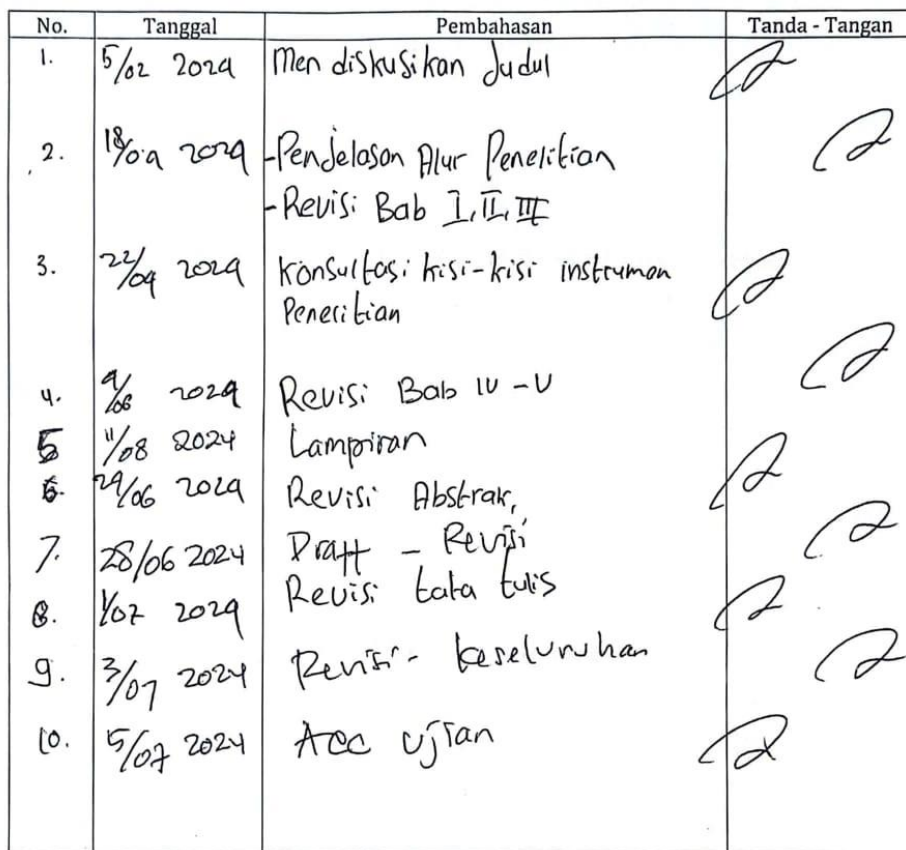 No. Tanggal Pembahasan Tanda - Tangan
1. 5/02 2024 Mendiskusikan Judul
2. 18/04 2024 -Penjelasan Alur Penelitian
-Revisi Bab I, II, III
3. 22/04 2024 Konsultasi kisi-kisi instrumen
Penelitian
4. 4/06 2024 Revisi Bab IV - V
5 11/08 2024 Lampiran
6. 24/06 2024 Revisi Abstrak,
7. 28/06 2024 Draft - Revisi
8. 1/07 2024 Revisi tata tulis
9. 3/07 2024 Revisi - keseluruhan
10. 5/07 2024 Acc ujian